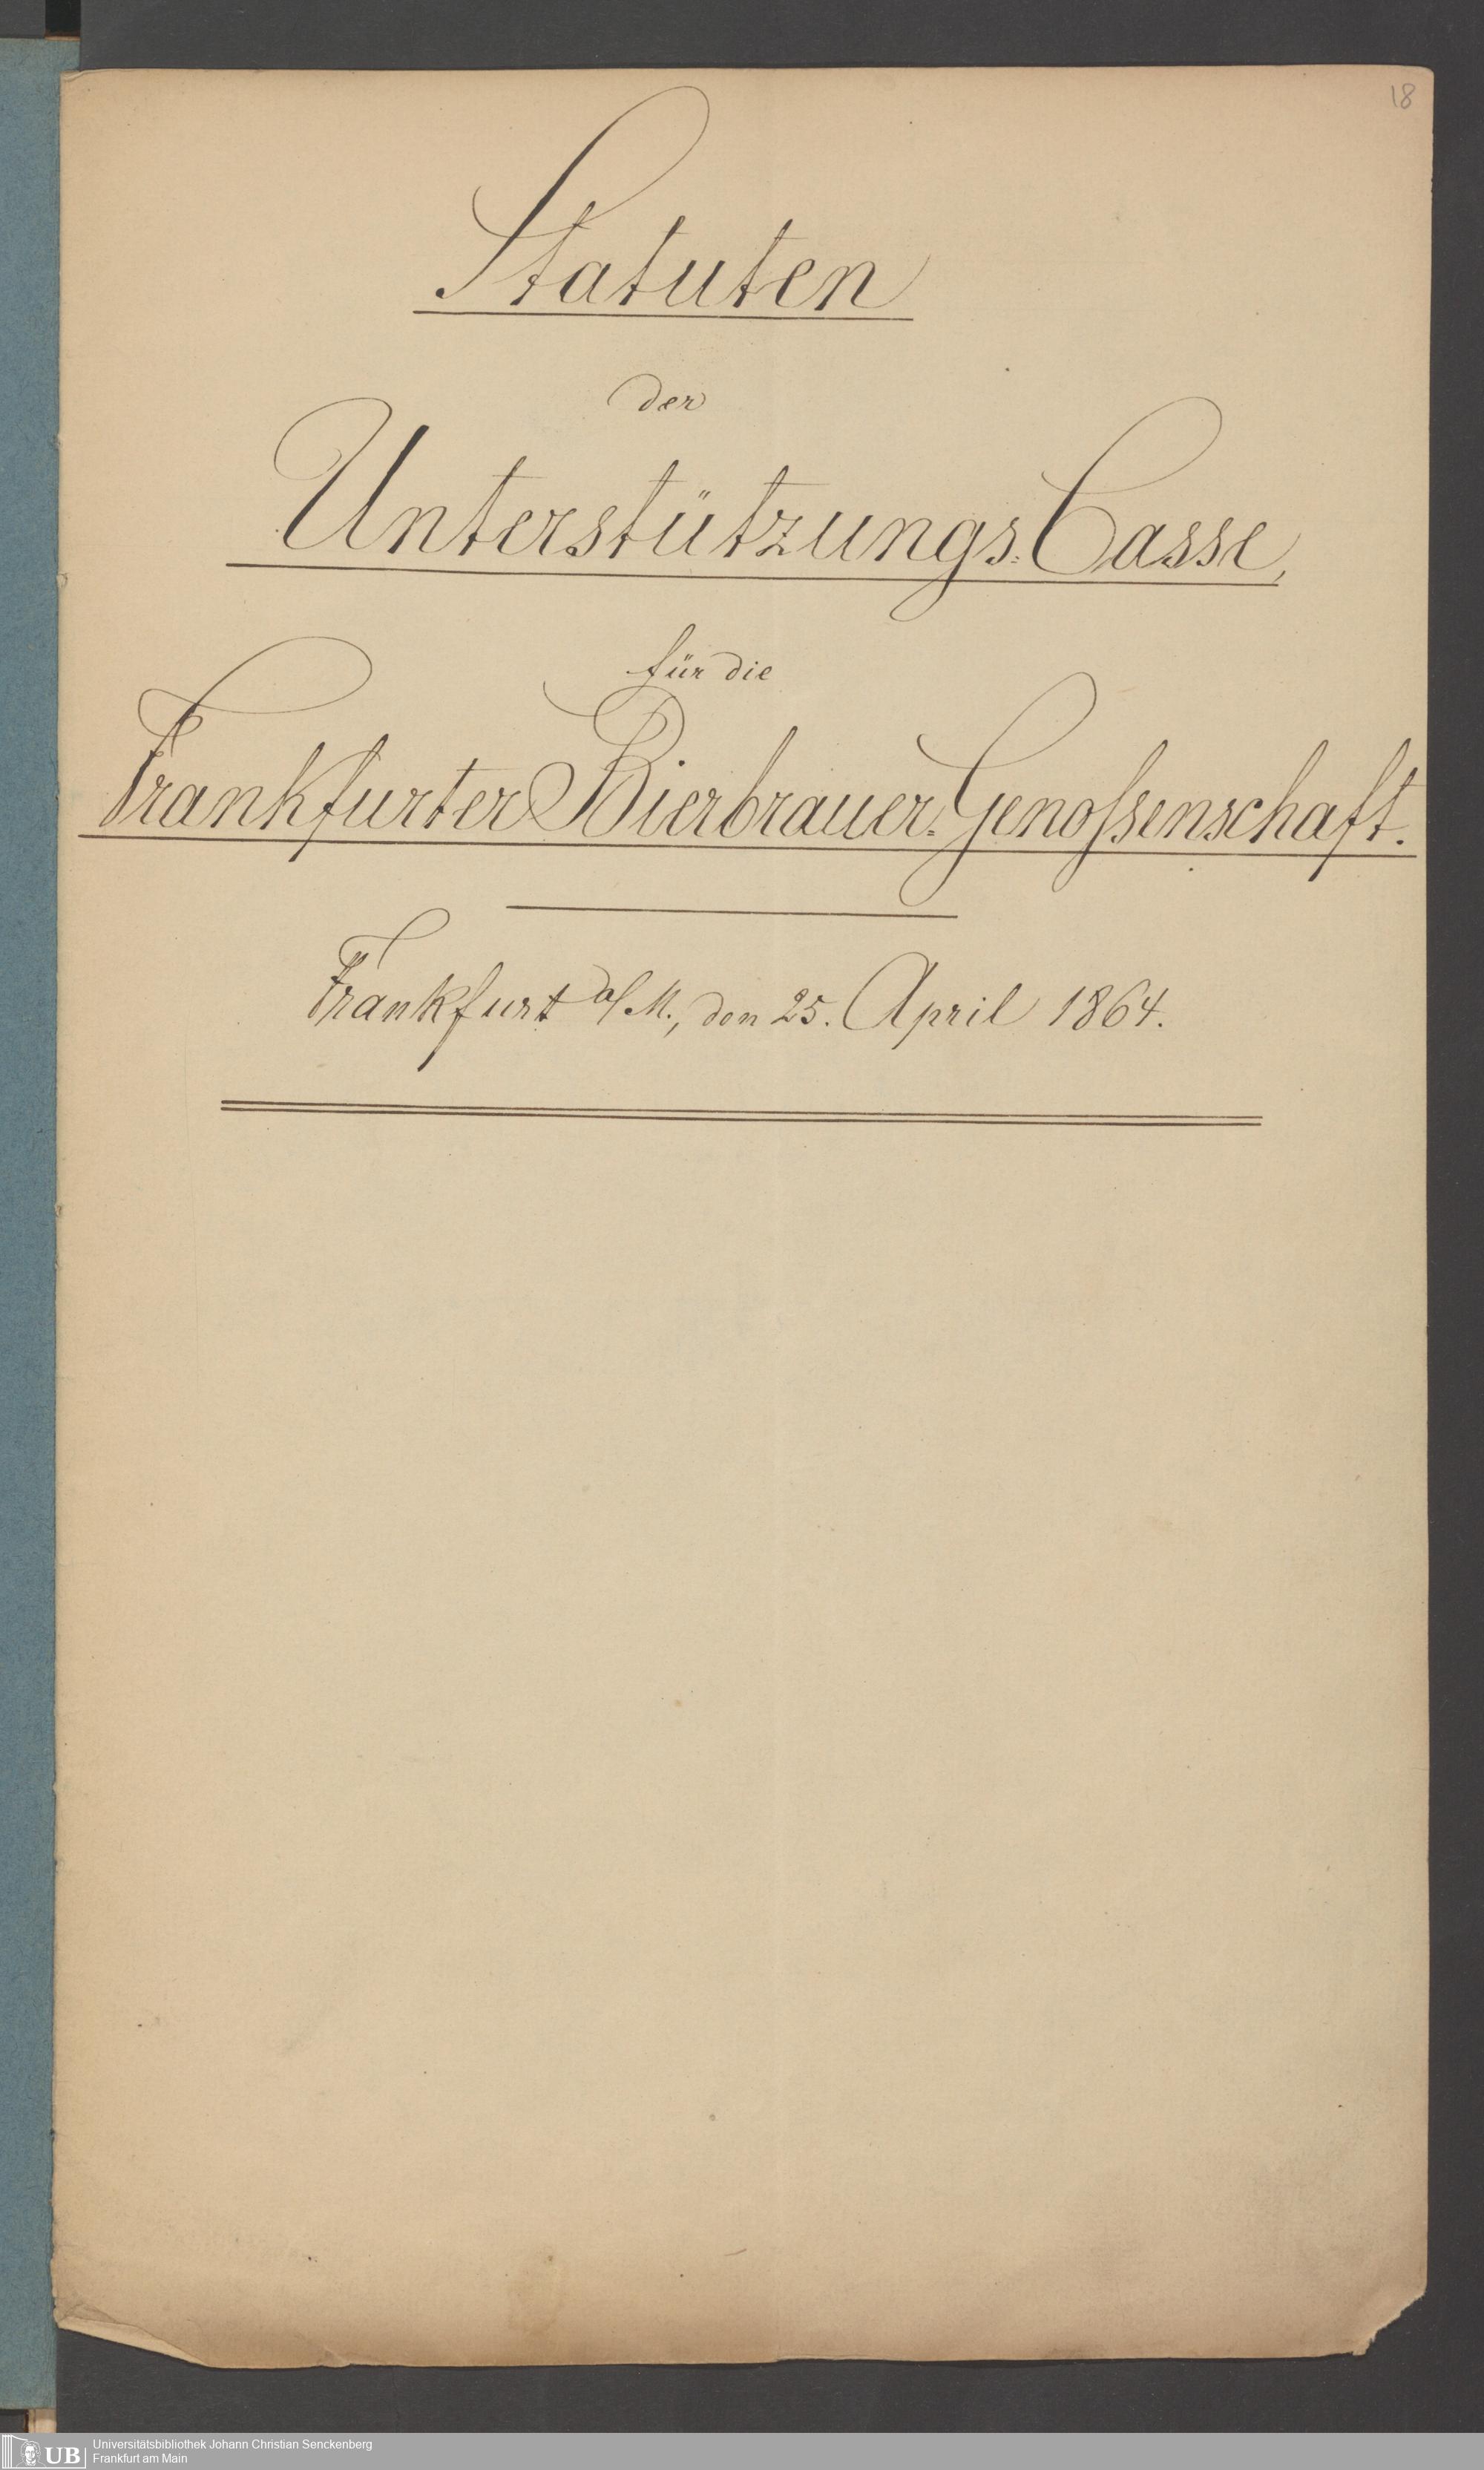 18
Statuten
der
Unterstützungs-Casse,
für die
Frankfurter Bierbrauer-Genoſsenschaft.
Frankfurt a/M., den 25. April 1864.
UB
Universitätsbibliothek Johann Christian Senckenberg
Frankfurt am Main